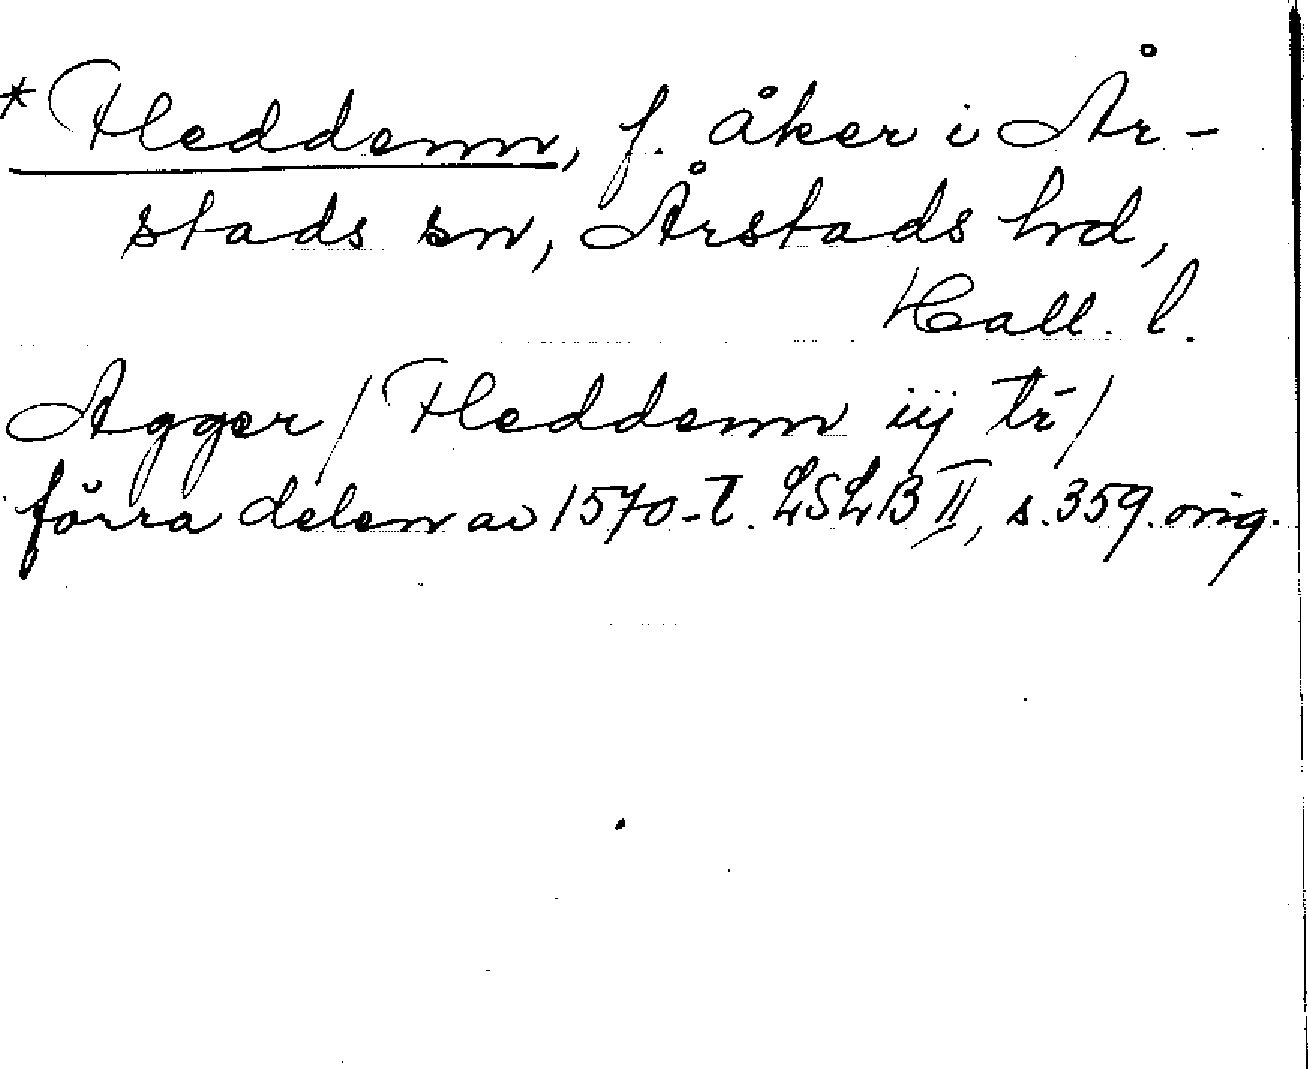 *Heddenn, f. åker i År-
stads sn, Årstads hd,
Hall. l.
Agger / Heddenn iij tr /
förra delen av 1570-t. LSLB II, s. 359. orig.